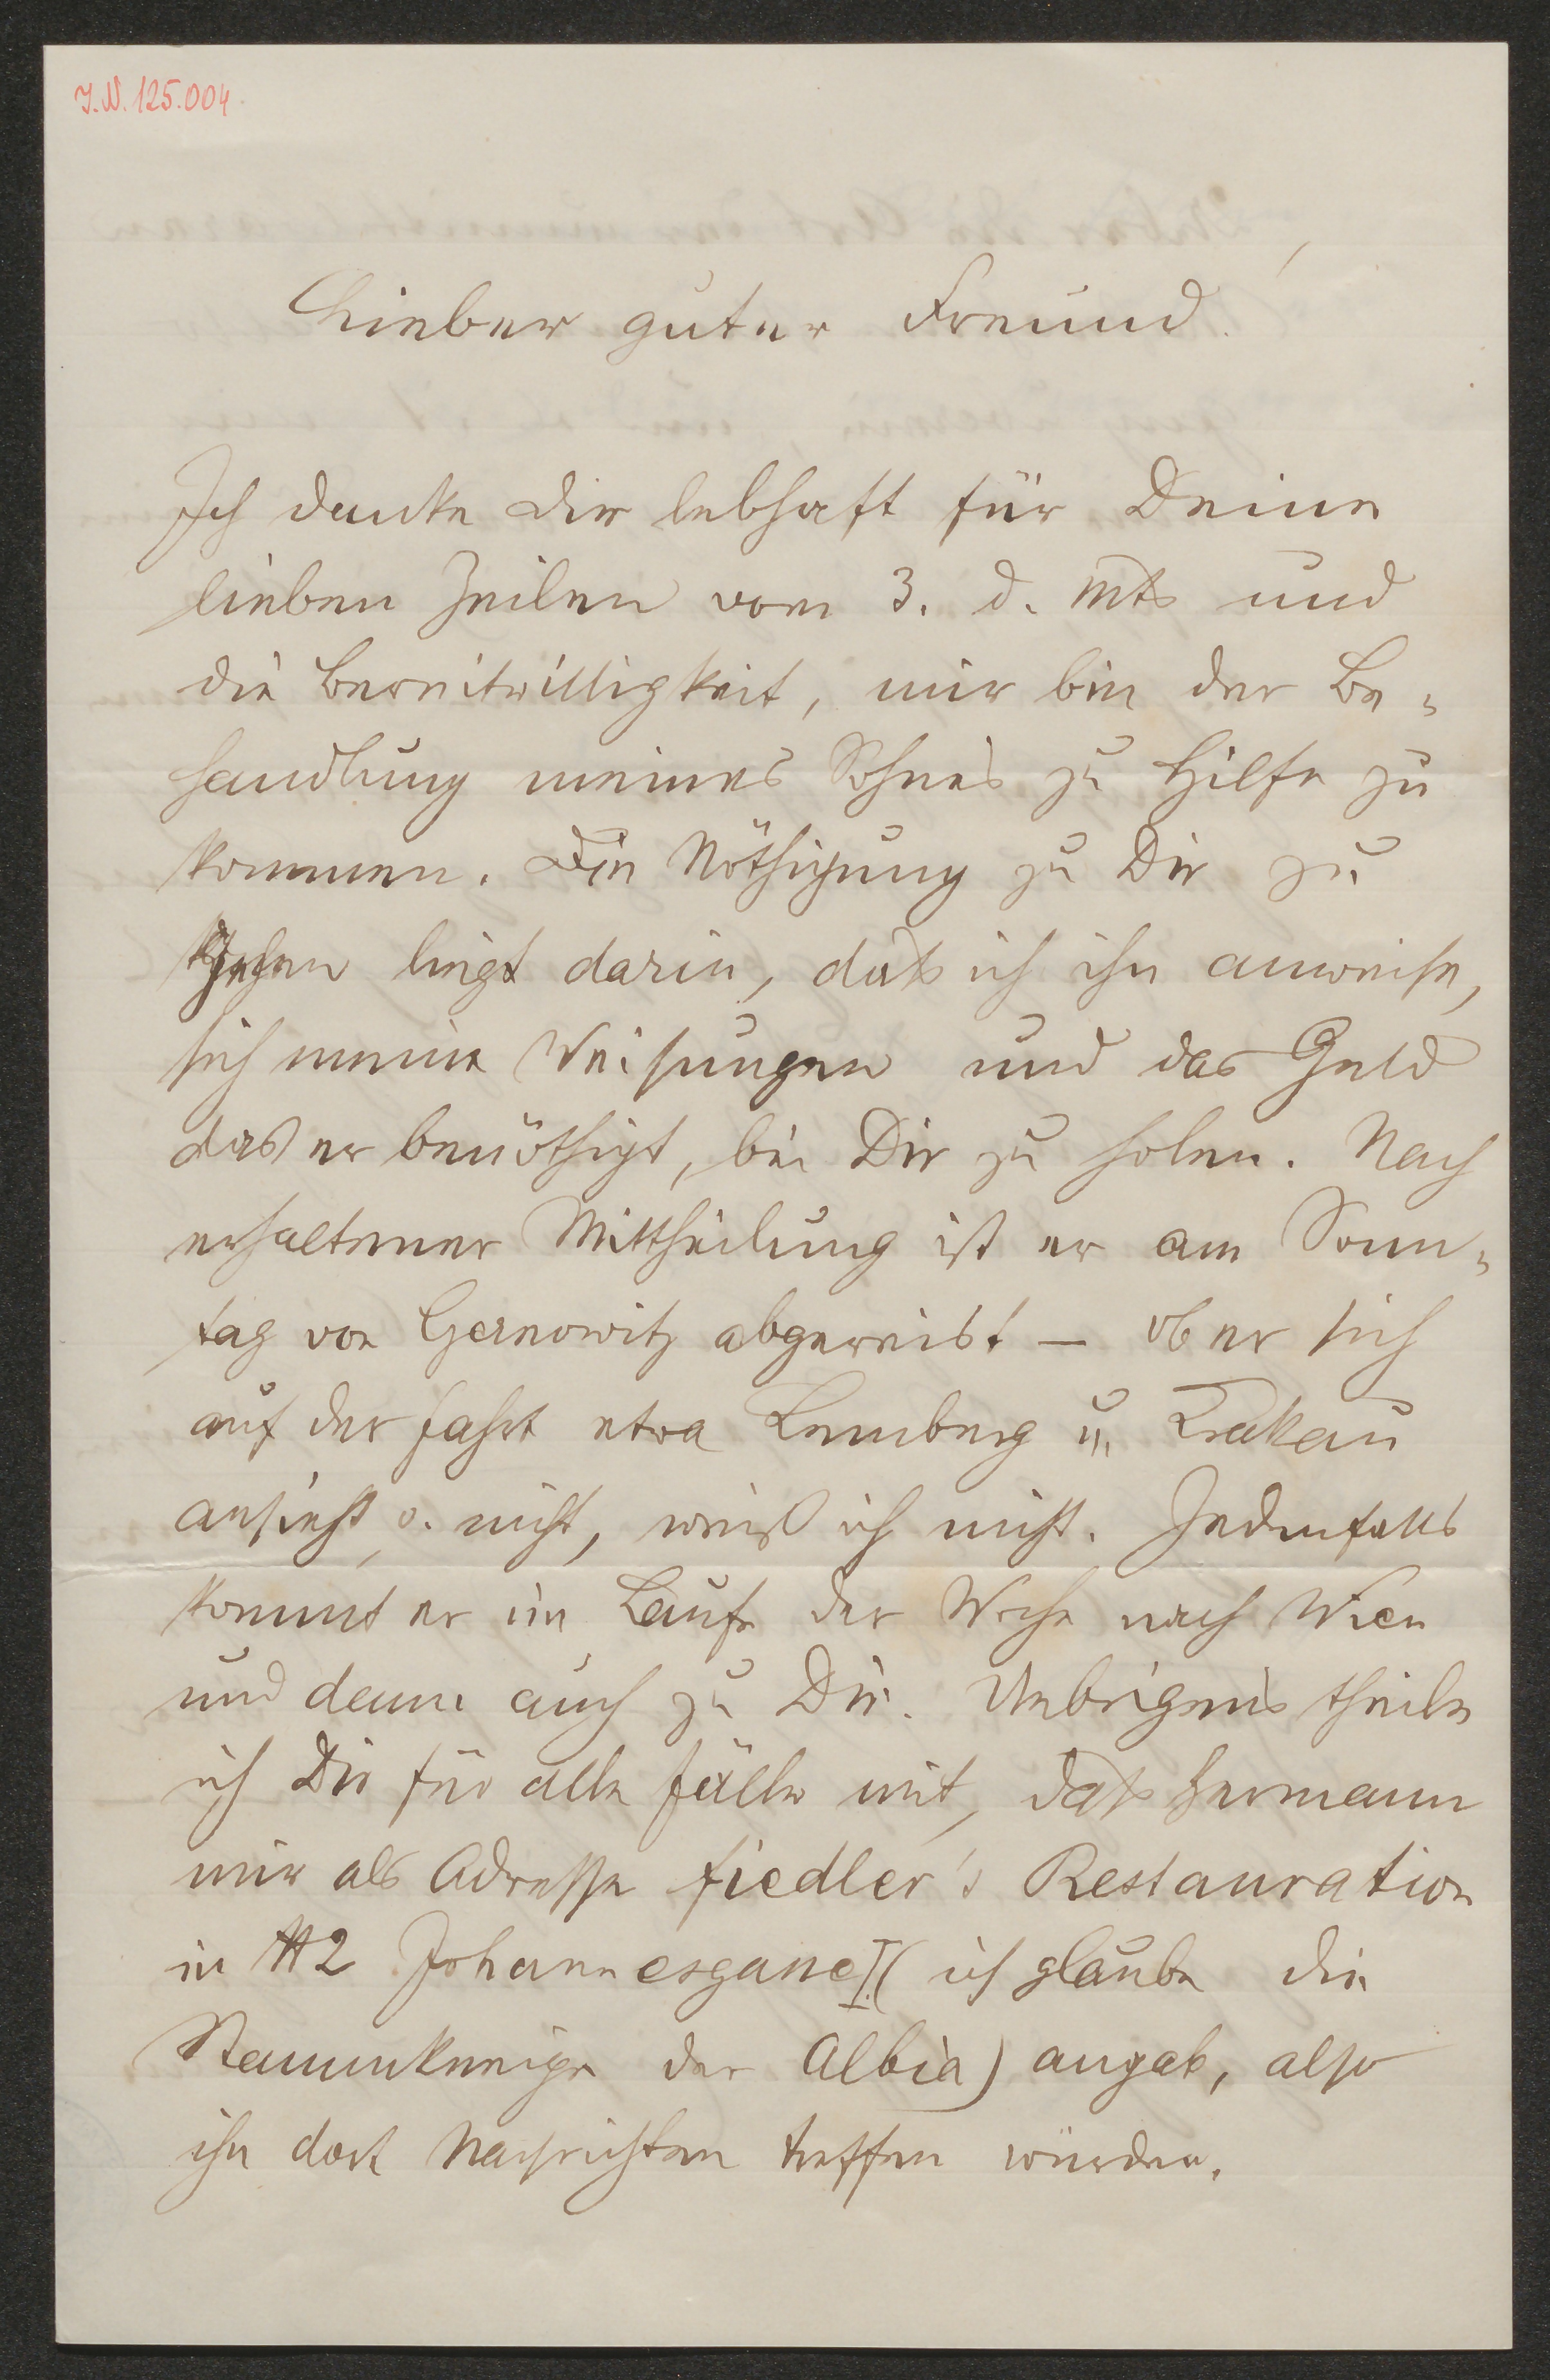 J.N. 125.004
Lieber guter Freund!
Ich danke Dir lebhaft für Deine
lieben Zeilen vom 3. d. Mts und
die Bereitwilligkeit, mir bei der Be-
handlung meines Sohnes zu Hilfe zu
kommen. Die Nöthigung zu Dir zu
gehen liegt darin, daß ich ihn anweise,
sich meine Weisungen und das Geld
das er benöthigt, bei Dir zu holen. Nach
erhaltener Mittheilung ist er am Sonn-
tag von Czernowitz abgereist – ob er sich
auf der Fahrt etwa Lemberg u. Krakau
ansieht o. nicht, weiß ich nicht. Jedenfalls
kommt er im Laufe der Woche nach Wien
und dann auch zu Dir. Uebrigens theile
ich Dir für alle Fälle mit, daß Hermann
mir als Adresse Fiedler's Restauration
in № 2 Johannesgasse I. (ich glaube die
Stammkneipe der Albia) angab, also
ihn dort Nachrichten treffen würden.